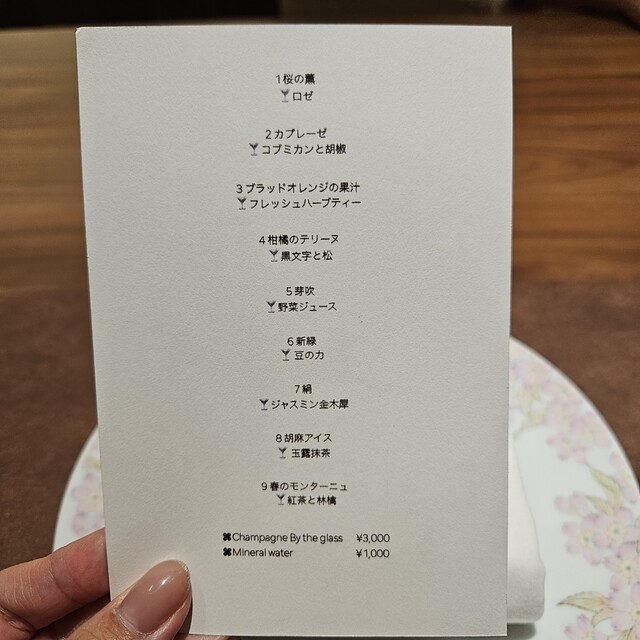 1桜の薫
🍸ロゼ
2カプレーゼ
🍸コブミカンと胡椒
3ブラッドオレンジの果汁
🍸フレッシュハーブティー
4柑橘のテリーヌ
🍸黒文字と松
5芽吹
🍸野菜ジュース
6新緑
🍸豆の力
7絹
🍸ジャスミン金木犀
8胡麻アイス
🍸玉露抹茶
9春のモンターニュ
🍸紅茶と林檎
✤Champagne By the glass ¥3,000
✤Mineral water ¥1,000